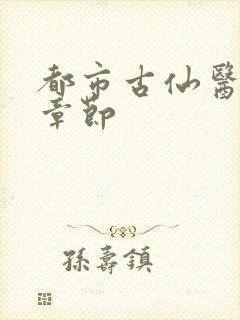 都市古仙醫
章節
孫壽鎮